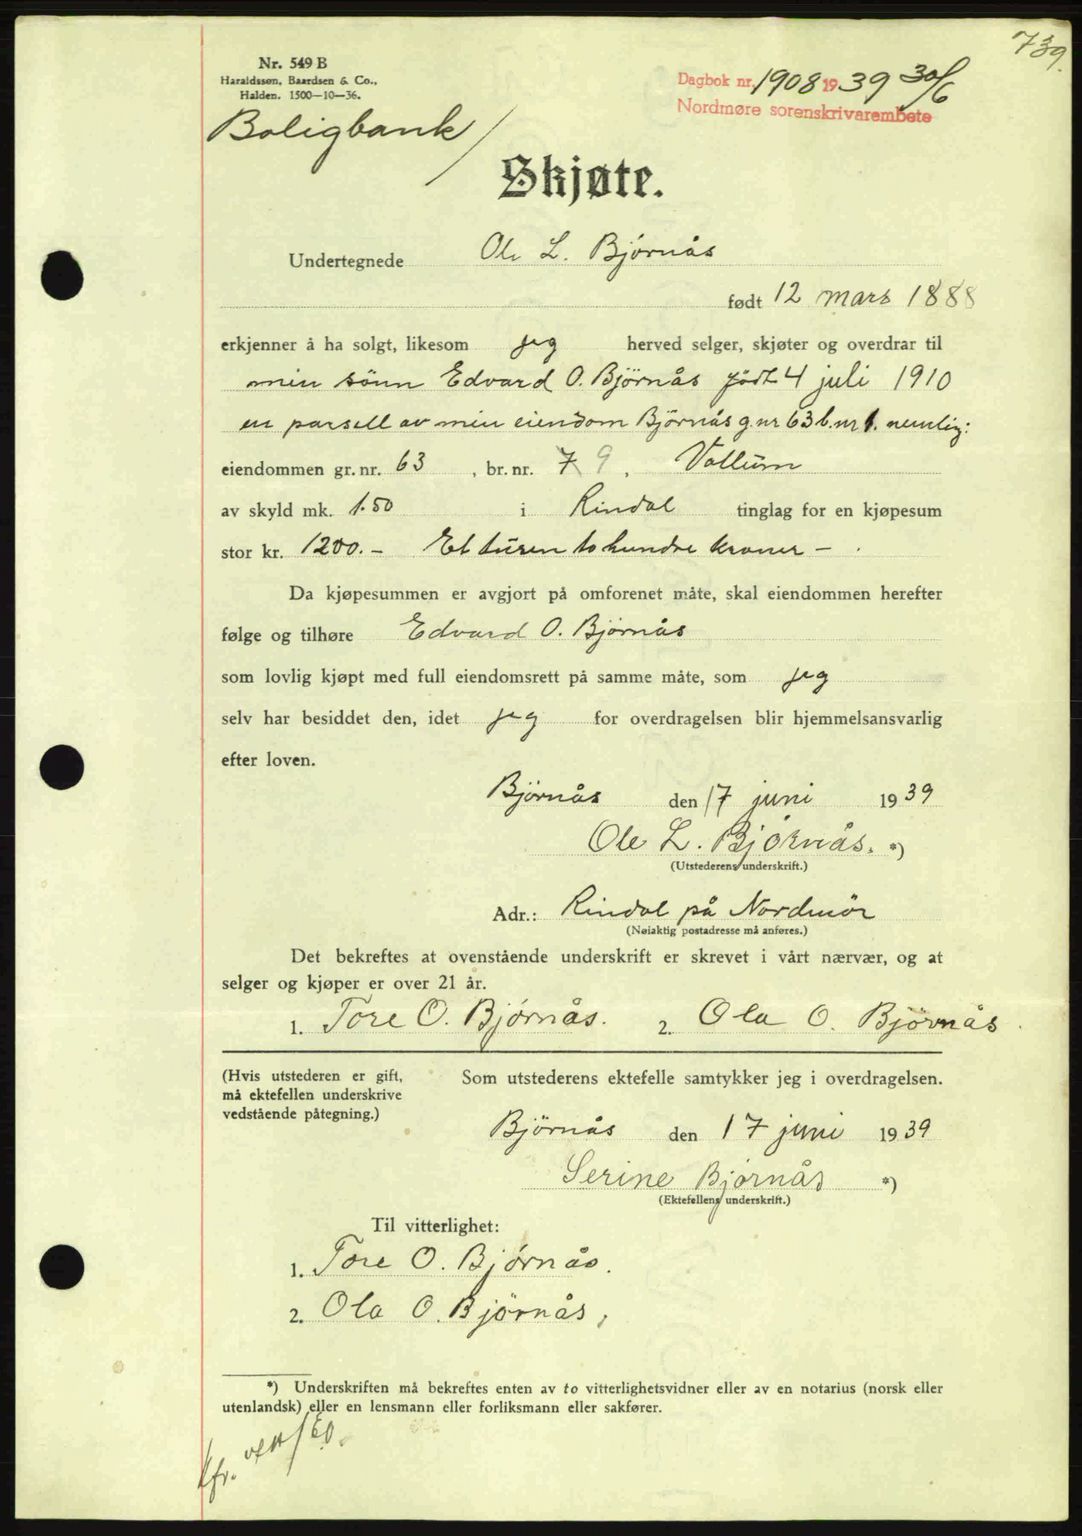 739.
Nr. 549 B
Haraldssøn, Baardsen & Co.,
Halden. 1500—10—36.
Dagbok nr. 1908 1939 30/6
Nordmøre sorenskrivarembete
Boligbank/
Skjøte.
Undertegnede Ole L. Bjørnås
født 12 mars 1888
erkjenner å ha solgt, likesom jeg herved selger, skjøter og overdrar til
min sønn Edvard O. Bjørnås født 4 juli 1910
en parsell av min eiendom Bjørnås g.nr 63 b.nr 1. nemlig:
eiendommen gr. nr. 63 , br. nr. 7 9. Vollum
av skyld mk. 1.50 i Rindal tinglag for en kjøpesum
stor kr. 1200.- Et tusen to hundre kroner - .
Da kjøpesummen er avgjort på omforenet måte, skal eiendommen herefter
følge og tilhøre Edvard O. Bjørnås
som lovlig kjøpt med full eiendomsrett på samme måte, som jeg
selv har besiddet den, idet jeg for overdragelsen blir hjemmelsansvarlig
efter loven.
Bjørnås den 17 juni 1939
Ole L. Bjørnås. *)
(Utstederens underskrift.)
Adr.: Rindal på Nordmör
(Nøiaktig postadresse må anføres.)
Det bekreftes at ovenstående underskrift er skrevet i vårt nærvær, og at
selger og kjøper er over 21 år.
1. Tore O. Bjørnås. 2. Ola O. Bjørnås
(Hvis utstederen er gift, Som utstederens ektefelle samtykker jeg i overdragelsen.
må ektefellen underskrive
vedstående påtegning.)
Bjørnås den 17 juni 1939
Serine Bjørnås *)
(Ektefellens underskrift.)
Til vitterlighet:
1. Tore O. Bjørnås.
2. Ola O. Bjørnås,
*) Underskriften må bekreftes enten av to vitterlighetsvidner eller av en notarius (norsk eller
utenlandsk) eller en lensmann eller forliksmann eller sakfører.